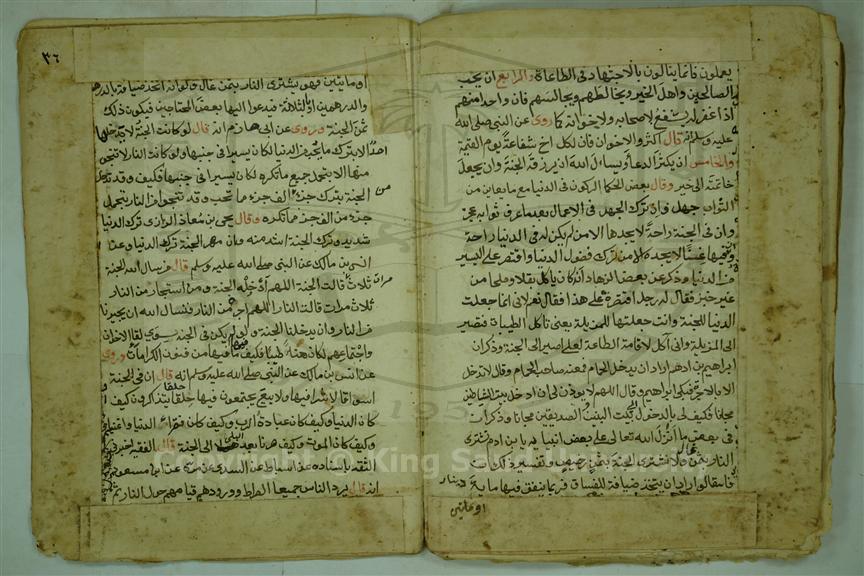 يعملون فانما ينالون بالاجتهاد في الطاعاة والرابع ان يحب
الصالحين واهل الخير ويخالطهم ويجالسهم فان واحدا منهم
اذا غفر له يشفع لاصحابه ولاخوانه كما روى عن النبي صلى الله
عليه وسلم انه قال اكثروا الاخوان فان لكل اخ شفاعة يوم القيمة
والخامس ان يكثر الدعا ويساءل الله ان يرزقه الجنة وان يجعل
خاتمته الى خير وقال بعض الحكما الركون في الدنيا مع ما يعاين من
الثواب جهل وان ترك الجهد في الاعمال بعد ما عرف ثوابه عجز
وان في الجنة راحة لا يجدها الا من لم يكن له في الدنيا راحة
وفيها غنا لا يجده الا من ترك فضول الدنيا واقتصر على اليسير
من الدنيا وذكر عن بعض الزهاد انه كان ياكل بقلا وملحا من
غير خبز فقال له رجل اقتصرت على هذا فقال نعم لاني انما جعلت
الدنيا للجنة وانت جعلتها للمزبلة يعني تاكل الطيبات فتصير
الى المزبلة واني آكل لاقامة الطاعة لعلي اصير الى الجنة وذكر ان
ابراهيم بن ادهم اراد ان يدخل الحمام فمنعه صاحب الحمام وقال لا تدخل
الا بالاجرة فبكى ابراهيم وقال اللهم لا يوذن لي ان ادخل بيت الشياطين
مجانا فكيف لي بالدخول الى بيت النبيين والصديقين مجانا وذكر ان
في بعض ما انزل الله تعالى على بعض انبيائه يا بن ادم تشتري
النار بثمن غال ولا تشتري الجنة بثمن رخيص وتفسير ذلك ان
فاسقا لو اراد ان يتخذ ضيافة للفساق فربما ينفق فيها ماية دينار
او مائتين
٣٦
او مايتين فهو يشترى النار بثمن غال ولو انه اتخذ ضيافة بالدرهم
والدرهمين او الثلاثة فيدعوا اليها بعض المحتاجين فيكون ذلك
ثمن الجنة وروى عن ابي حازم انه قال لو كانت الجنة لا يدخلها
احد الا بترك ما يحب من الدنيا لكان يسيرا في جنبها ولو كانت النار لا ينجو
منها الا بتحمل جميع ما تكره لكان يسيرا في جنبها فكيف وقد تدخل
الجنة بترك جزء من الف جزء ما تحب وقد تنجو من النار بتحمل
جزء من الف جزء ما تكره وقال يحيى بن معاذ الرازى ترك الدنيا
شديد وترك الجنة اشد منه وان مهر الجنة ترك الدنيا وعن
انس بن مالك عن النبي صلى الله عليه وسلم قال من يسال الله الجنة
ثلاث مرات قالت الجنة اللهم أدخله الجنة ومن استجار من النار
ثلاث مرات قالت النار اللهم اجره من النار فنسال الله ان يجيرنا
من النار وان يدخلنا الجنة ولو لم يكن في الجنة سوى لقا الاخوان
واجتماعهم لكان هنيا طيبا فكيف ما فيها من فنون الكرامات وروى
عن انس بن مالك عن النبي صلى الله عليه وسلم انه قال ان في الجنة
اسواقا لا شرا فيها ولا بيع يجتمعون فيها حلقا يتذاكرون كيف
كان الدنيا وكيف كان عبادة الرب وكيف كان فقراء الدنيا واغنياؤها
وكيف كان الموت وكيف صرنا بعد البلى الى الجنة قال الفقيه اخبرني
الثقة باسناده عن اسباط عن السدى عن مرة عن ابن مسعود
انه قال يرد الناس جميعا الصراط وورودهم قيامهم حول النار ثم
Copyright © King Saud University